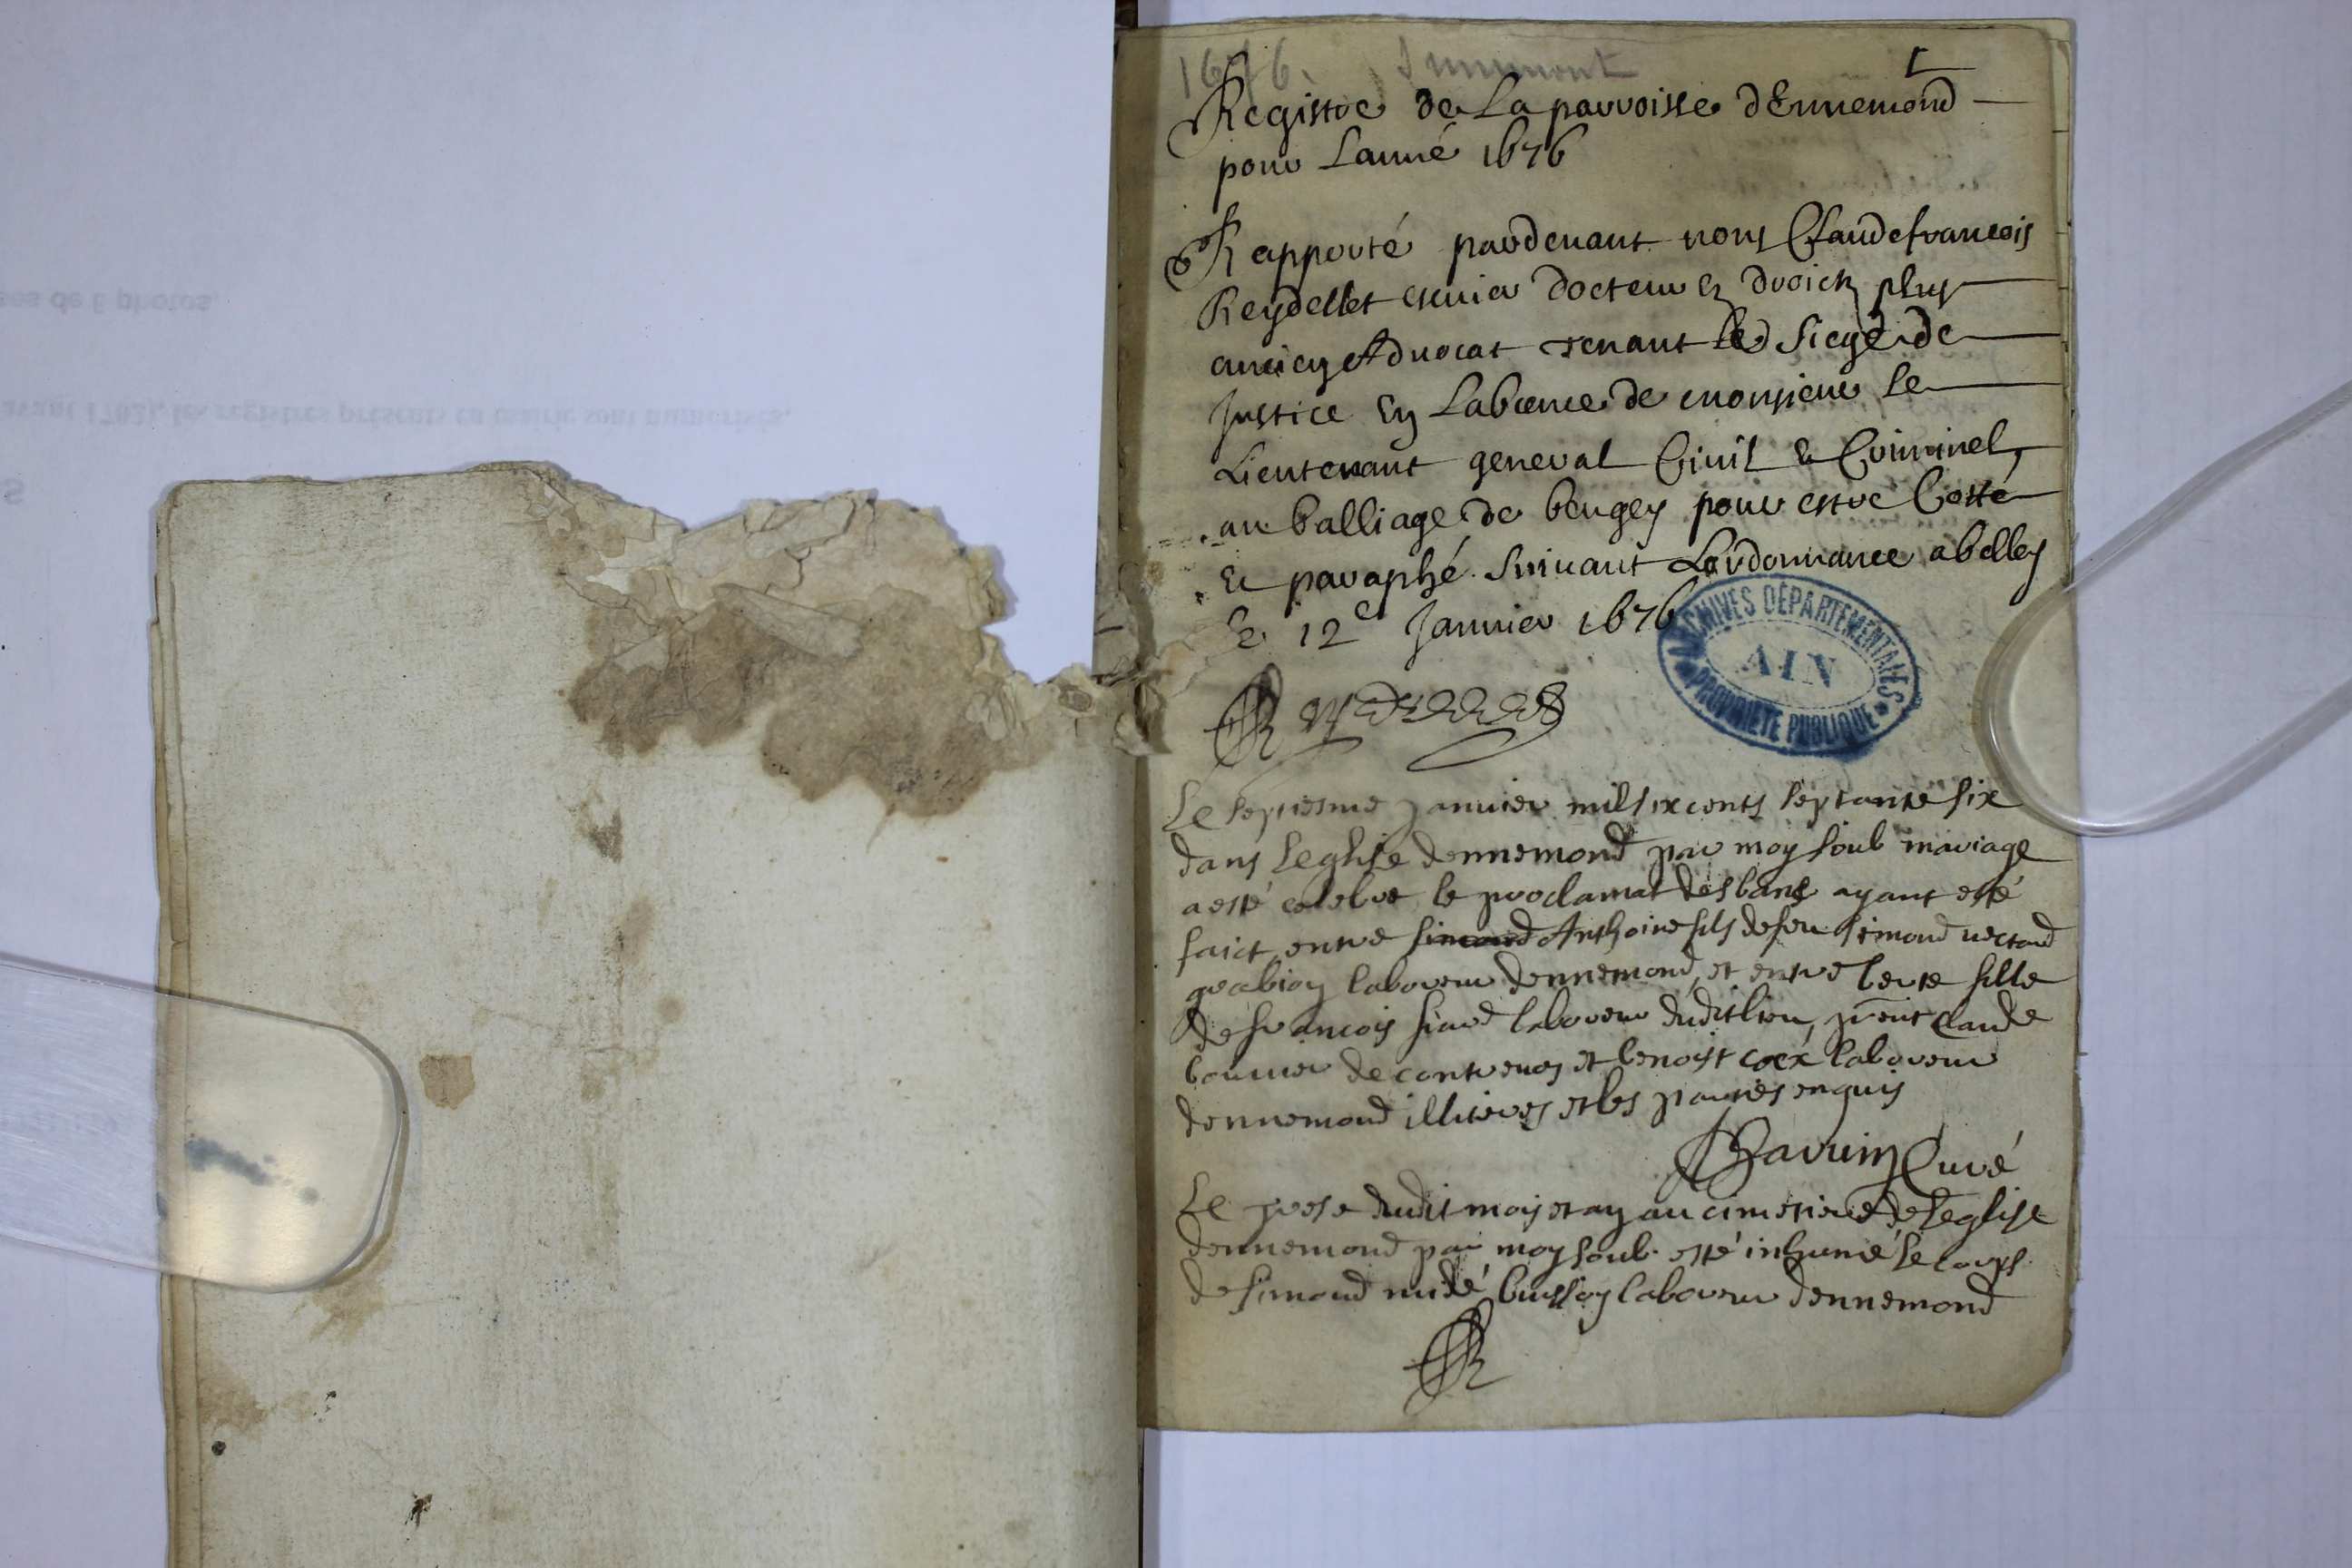 1676. Innimont
Registre de La parroisse dEnnemond
pour Lanné 1676
Rapporté pardenant nous Claude francois
Reydellet escuier docteur Ez droictz plus
ancien Advocat tenant le Siege de
Justice En Labcence de monsieur Le
Lieutenant general Civil & Criminel
au balliage de beugey pour estre Cotté
Et paraphé Suivant Lordonnance a belley
Le 12e Janvier 1676
ARCHIVES DÉPARTEMENTALES
AIN
PROPRIÉTÉ PUBLIQUE
Le septiesme Janvier mil six cents septante six
dans Leglise dennemond par moy soub mariage
a esté celebré le proclamat des bans ayant esté
faict entre simond Anthoine fils de feu simond
laboreur dennemond, et entre fille
de francois laboreur dudit lieu, pnt Claude
de et benoist laboreur
dennemond illiteres et les parties enquis
Curé
Le dudit mois et an au cimetiere de Leglise
dennemond par moy soub. esté inhumé le corps
de simond laboreur dennemond